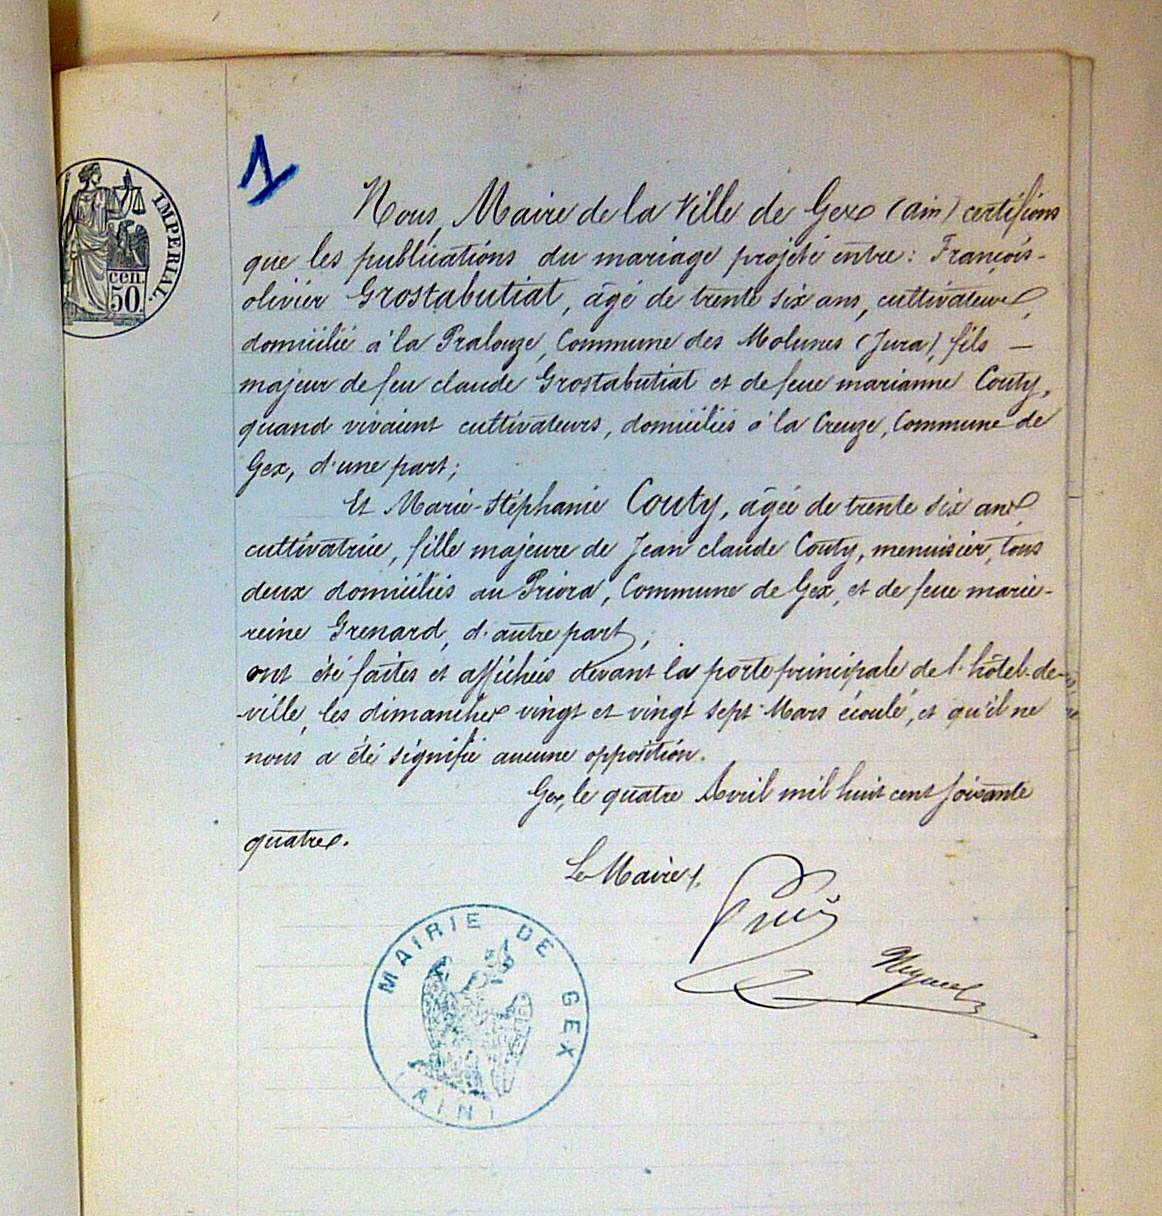 1
IMPERIAL.
cen.
50.
Nous, Maire de la Ville de Gex (ain) certifions
que les publications du mariage projeté entre: François-
olivier Grostabutiat, âgé de trente six ans, cultivateur,
domicilié à la Pralouze, Commune des Molunes (Jura), fils —
majeur de feu claude Grostabutiat et de feue marianne Couty,
quand vivaient cultivateurs, domiciliés à la Creuze, Commune de
Gex, d'une part;
Et Marie-Stéphanie Couty, âgée de trente six ans
cultivatrice, fille majeure de Jean claude Couty, menuisier, tous
deux domiciliés au Priora, Commune de Gex, et de feue marie-
reine Grenard, d'autre part;
ont été faites et affichées devant la porte principale de l'hôtel-de-
-ville, les dimanches vingt et vingt sept Mars écoulé, et qu'il ne
nous a été signifié aucune opposition.
Gex, le quatre Avril mil huit cent soixante
quatre.
Le Maire,
MAIRIE DE GEX
(AIN)